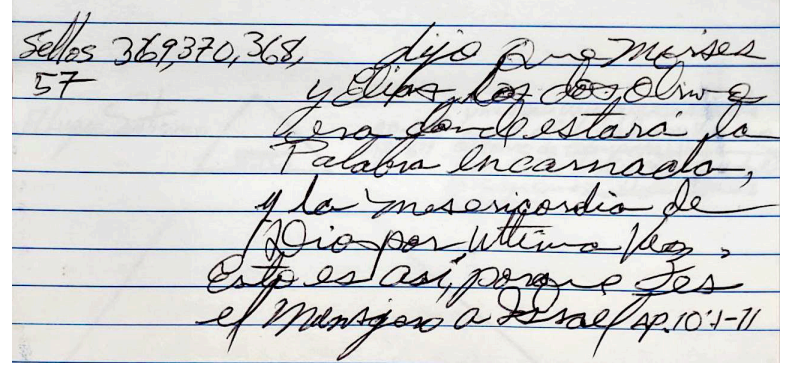 Sellos 369,370,368, dijo que Moises
57 y Elias los dos Olivo
era donde estará la
Palabra encarnada,
y la misericordia de
Dios por ultima Vez,
Esto es así, porque es
el Mensajero a Israel AP.10:1-11